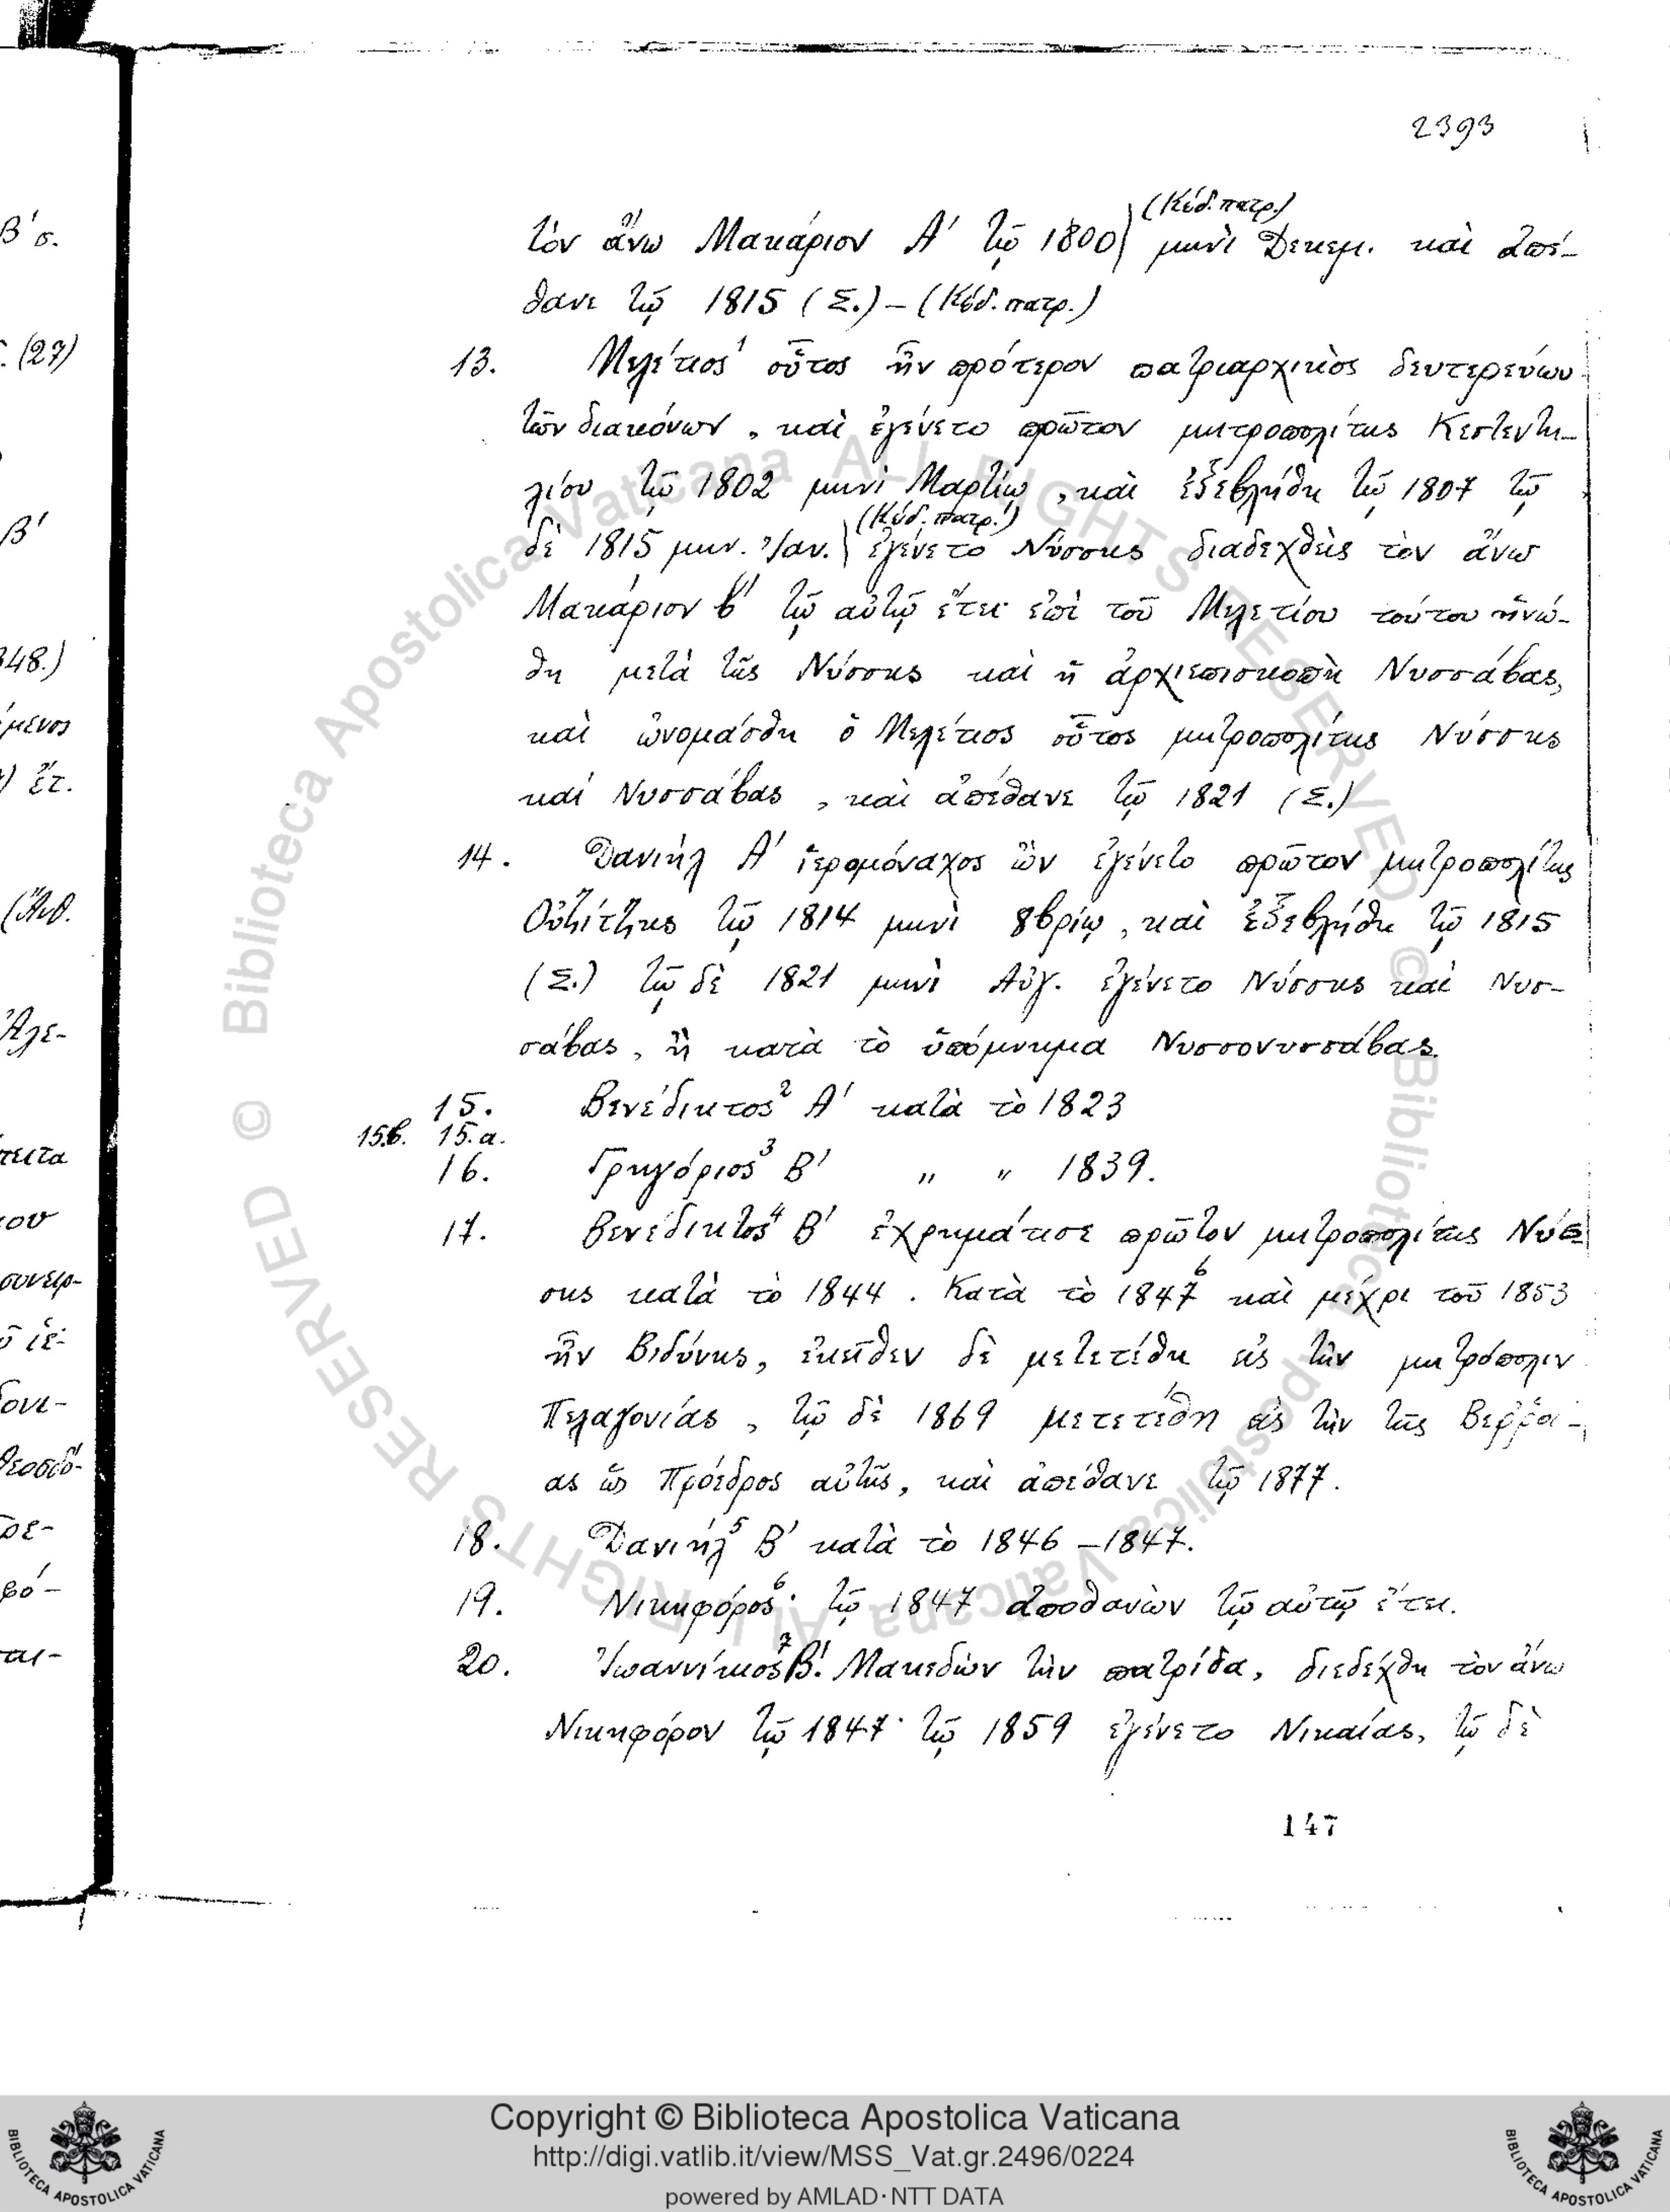 2393
(Κώδ. πατρ.)
τὸν ἄνω Μακάριον Α' τῷ 1800) μηνὶ Δεκεμ. καὶ ἀπέ-
θανε τῷ 1815 (Σ.) – (Κώδ. πατρ.)
13. Μελέτιος¹ οὗτος ἦν πρότερον πατριαρχικὸς δευτερεύων
τῶν διακόνων, καὶ ἐγένετο πρῶτον μητροπολίτης Κεστεντη-
λίου τῷ 1802 μηνὶ Μαρτίῳ, καὶ ἐξεβλήθη τῷ 1807 τῷ
(Κώδ. πατρ.)
δὲ 1815 μην. Ἰαν.) ἐγένετο Νύσσης διαδεχθεὶς τὸν ἄνω
Μακάριον β' τῷ αὐτῷ ἔτει· ἐπὶ τοῦ Μελετίου τούτου ἡνώ-
θη μετὰ τῆς Νύσσης καὶ ἡ ἀρχιεπισκοπὴ Νυσσάβας,
καὶ ὠνομάσθη ὁ Μελέτιος οὗτος μητροπολίτης Νύσσης
καὶ Νυσσάβας, καὶ ἀπέθανε τῷ 1821 (Σ.)
14. Δανιήλ Α' ἱερομόναχος ὢν ἐγένετο πρῶτον μητροπολίτης
Οὐζίτζης τῷ 1814 μηνὶ 8βρίῳ, καὶ ἐξεβλήθη τῷ 1815
(Σ.) τῷ δὲ 1821 μηνὶ Αὐγ. ἐγένετο Νύσσης καὶ Νυσ-
σάβας, ἢ κατὰ τὸ ὑπόμνημα Νυσσονυσσάβας.
15. Βενέδικτος² Α' κατὰ τὸ 1823
15.β. 15.α.
16. Γρηγόριος³ Β' " " 1839.
17. Βενέδικτος⁴ Β' ἐχρημάτισε πρῶτον μητροπολίτης Νύσ
σης κατὰ τὸ 1844. Κατὰ τὸ 1847⁶ καὶ μέχρι τοῦ 1853
ἦν Βιδύνης, ἐκεῖθεν δὲ μετετέθη εἰς τὴν μητρόπολιν
Πελαγονίας, τῷ δὲ 1869 μετετέθη εἰς τὴν τῆς Βερροί-
ας ὡς Πρόεδρος αὐτῆς, καὶ ἀπέθανε τῷ 1877.
18. Δανιήλ⁵ Β' κατὰ τὸ 1846 – 1847.
19. Νικηφόρος⁶· τῷ 1847 ἀποθανὼν τῷ αὐτῷ ἔτει.
20. Ἰωαννίκιος⁷ Β'. Μακεδὼν τὴν πατρίδα, διεδέχθη τὸν ἄνω
Νικηφόρον τῷ 1847· τῷ 1859 ἐγένετο Νικαίας, τῷ δὲ
147
Copyright © Biblioteca Apostolica Vaticana
http://digi.vatlib.it/view/MSS_Vat.gr.2496/0224
powered by AMLAD·NTT DATA